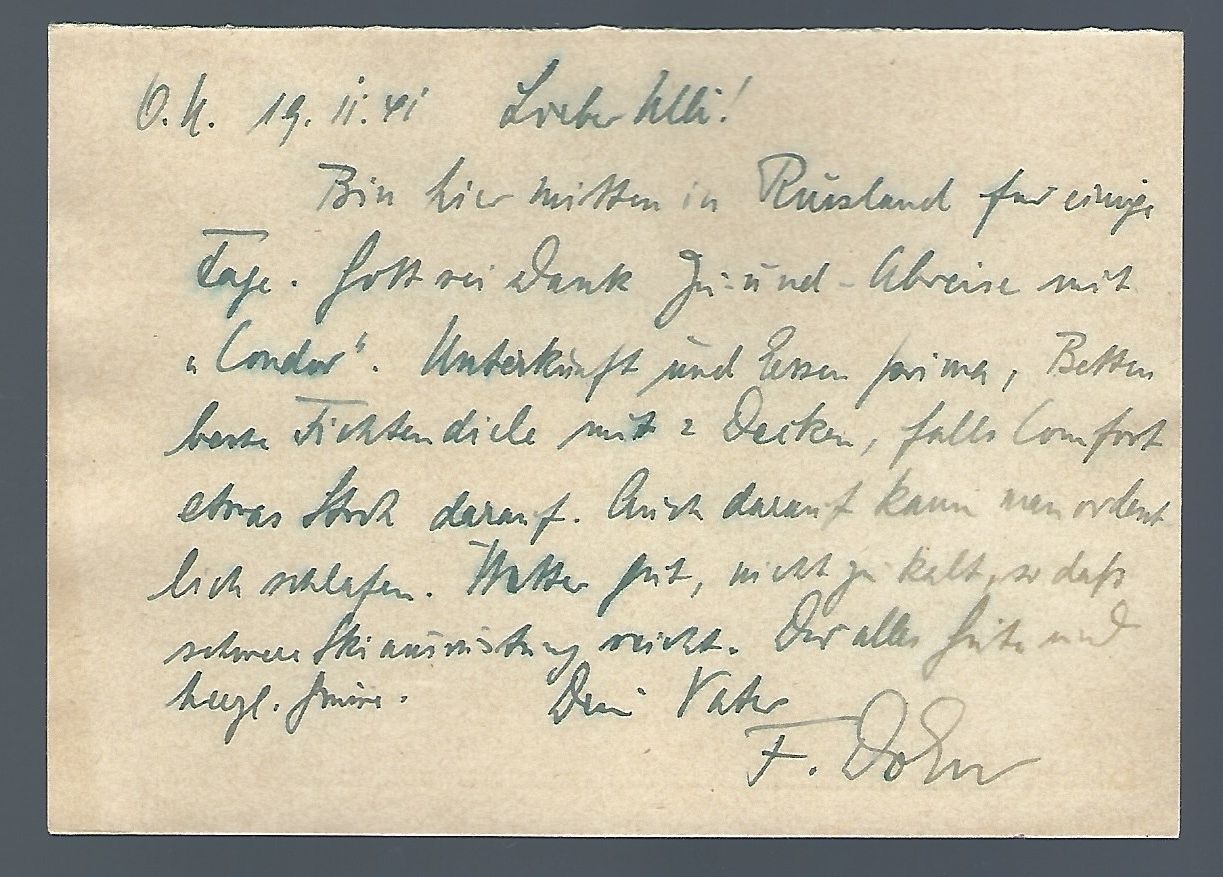 O.U. 19.II.41 Lieber Ulli!
Bin hier mitten in Russland für einige
Tage. Gott sei Dank Zu- und - Abreise mit
„Condor“. Unterkunft und Essen prima, Betten
beste Fichtendiele mit 2 Decken, falls Comfort
etwas Stroh darauf. Auch darauf kann man ordent
lich schlafen. Wetter gut, nicht zu kalt, so daß
schwere Skiausrüstung reicht. Dir alles Gute und
herzl. Grüsse. Dein Vater
F.